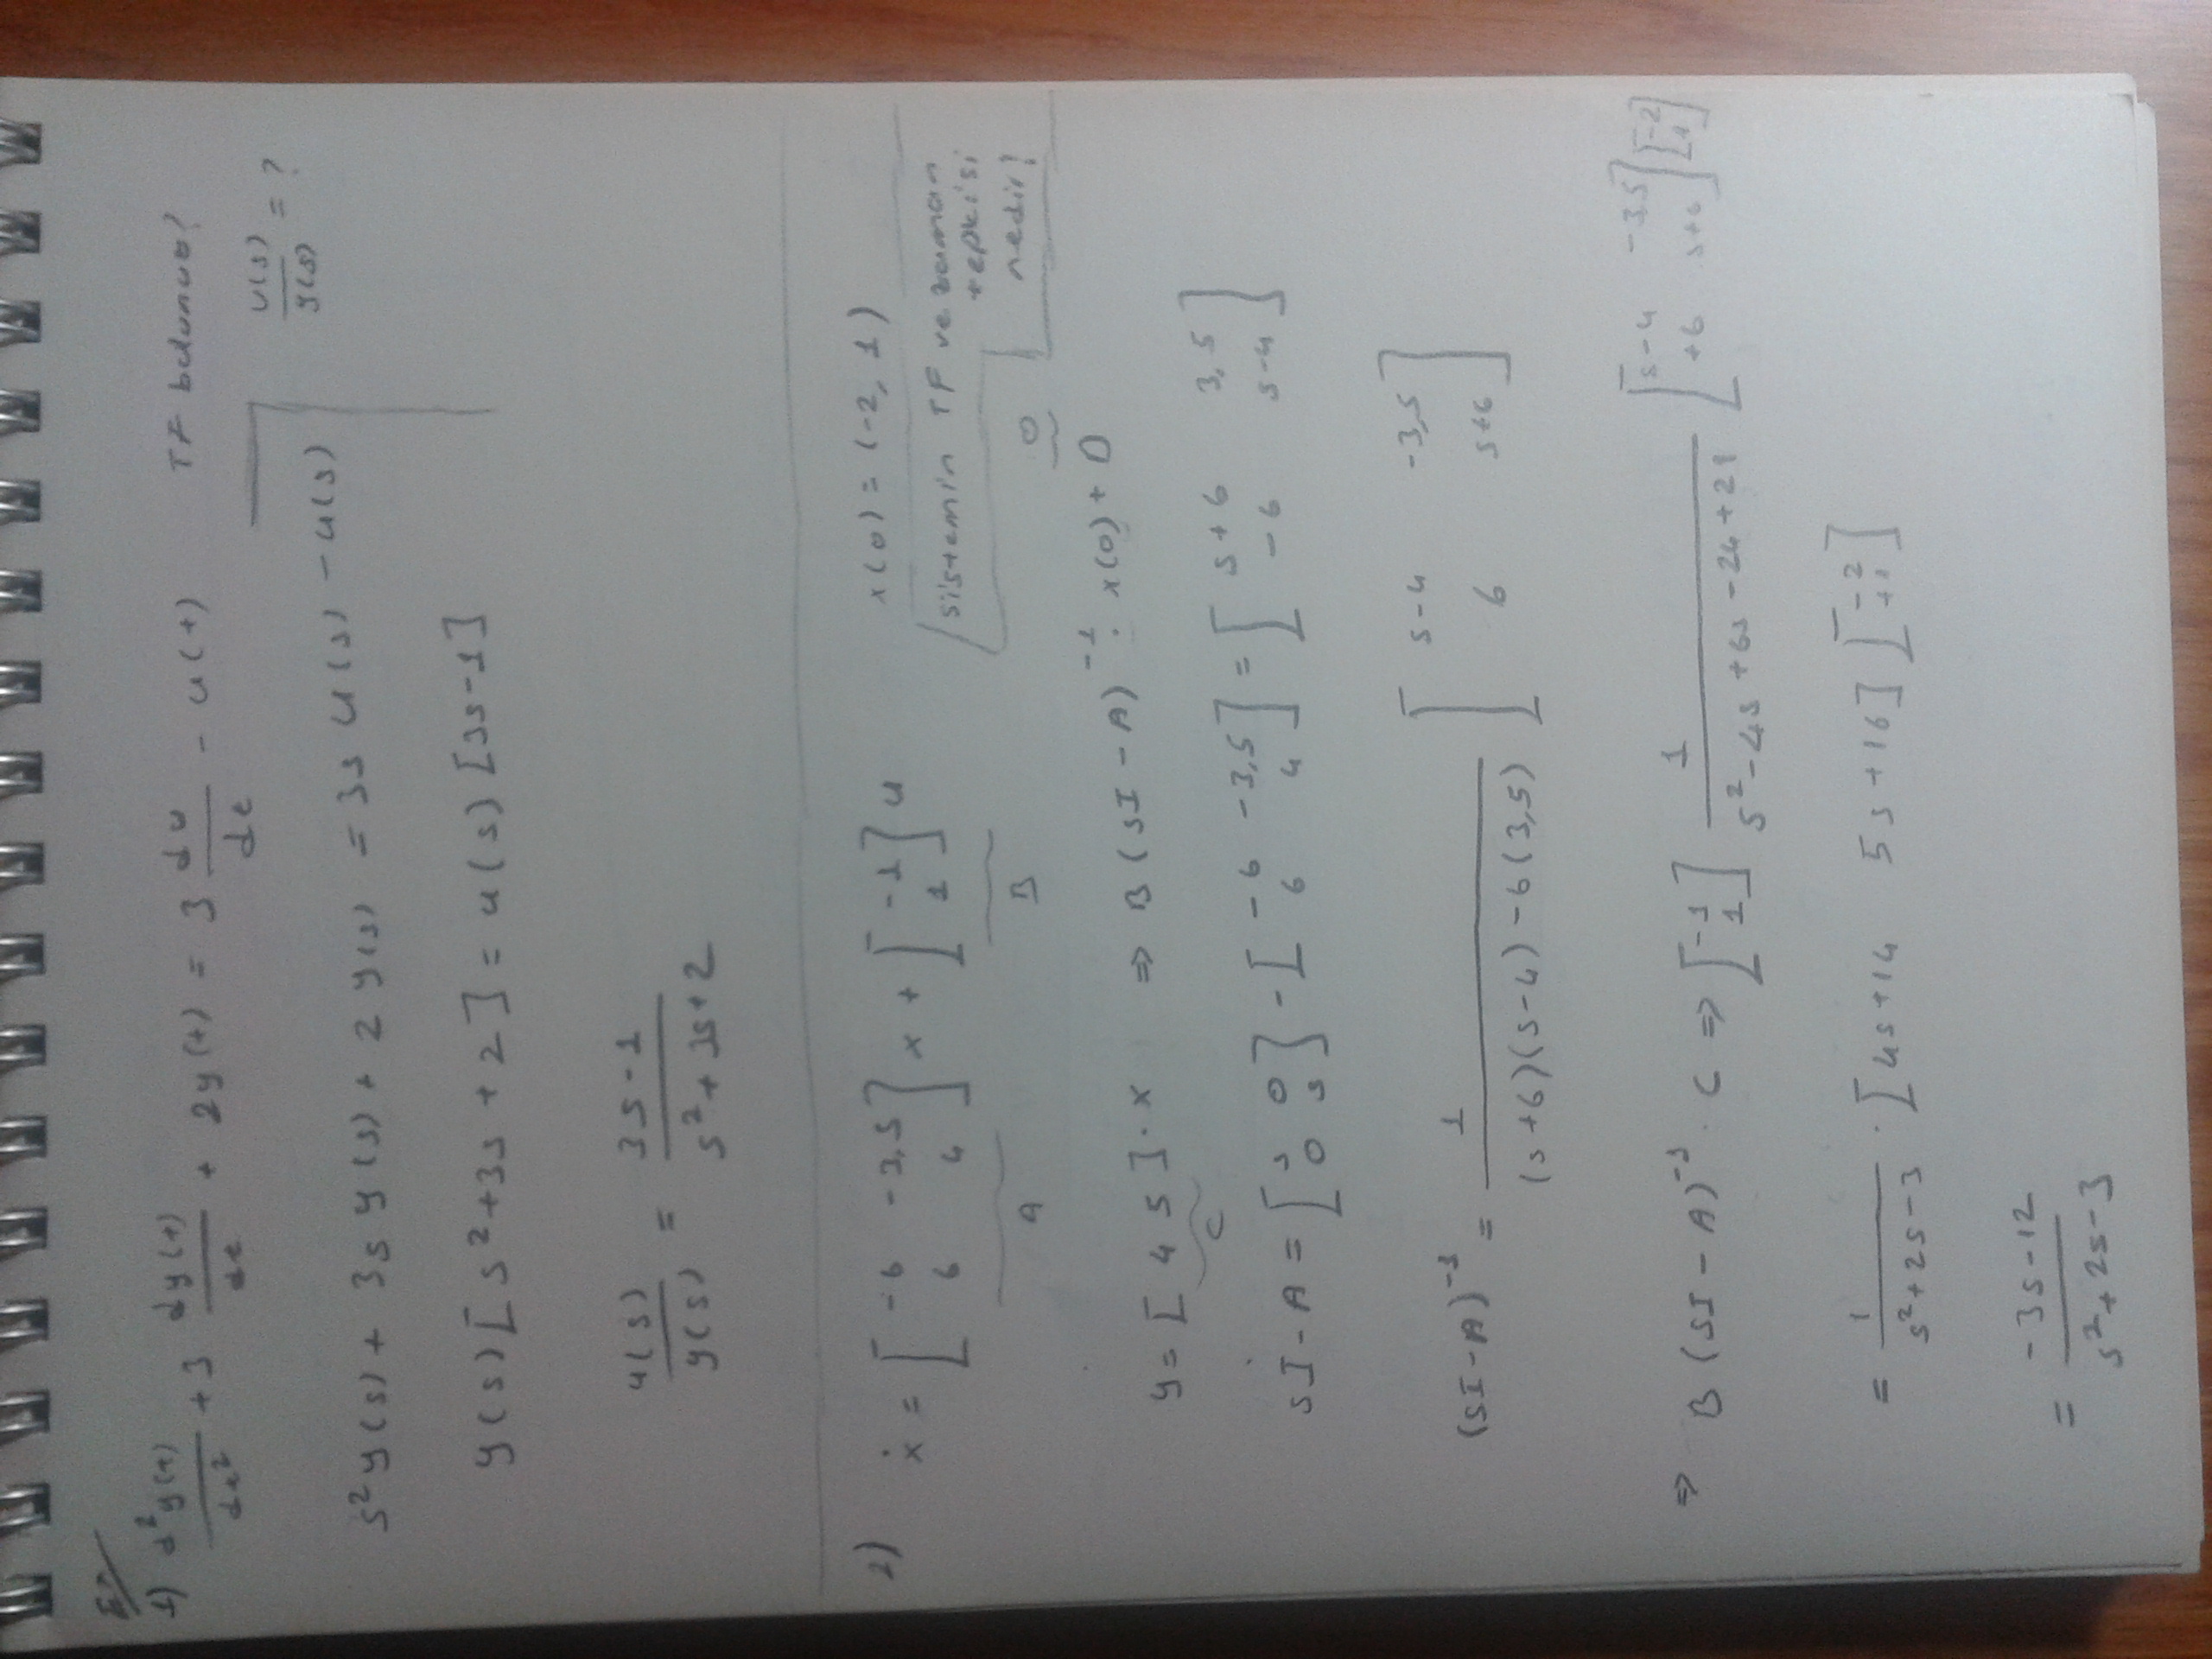 Ex
1) d²y(t)/dt² + 3 dy(t)/dt + 2y(t) = 3 du/dt - u(t) TF bulunuz?
u(s)/y(s) = ?
s²y(s) + 3s y(s) + 2 y(s) = 3s u(s) - u(s)
y(s)[s²+3s+2] = u(s)[3s-1]
u(s)/y(s) = 3s-1/s²+3s+2
2) ẋ = [-6 -3,5; 6 4] x + [-1; 1] u x(0) = (-2, 1)
A B
sistemin TF ve zaman
tepkisi
nedir?
0
y = [4 5]·x ⇒ B(sI-A)⁻¹·x(0) + D
C
sI-A = [s 0; 0 s] - [-6 -3,5; 6 4] = [s+6 3,5; -6 s-4]
(sI-A)⁻¹ = 1/(s+6)(s-4)-6(3,5) [s-4 -3,5; 6 s+6]
⇒ B(sI-A)⁻¹·C ⇒ [-1; 1] 1/s²-4s+6s-24+21 [s-4 -3,5; +6 s+6][-2; 1]
= 1/s²+2s-3 · [4s+14 5s+16][-2; +1]
= -3s-12/s²+2s-3